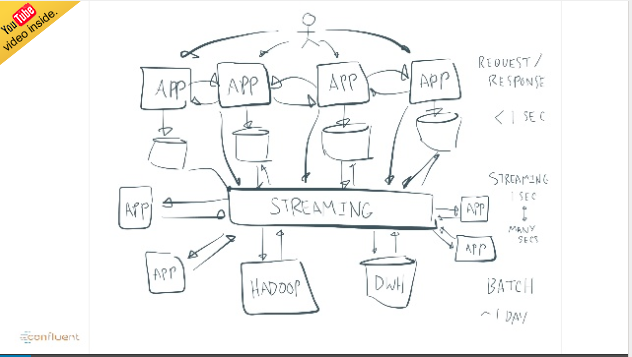 You Tube
video inside.
APP
APP
APP
APP
REQUEST/
RESPONSE
< 1 SEC
STREAMING
1 SEC
MANY
SECS
APP
STREAMING
APP
APP
APP
HADOOP
DWH
BATCH
~1 DAY
confluent